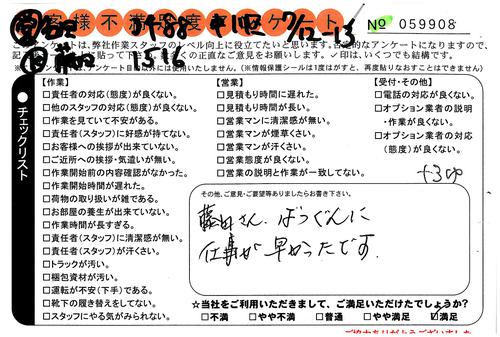 客様不満足度 アンケート
0488 申込 7/12-13
1516
No 059908
このアンケートは、弊社作業スタッフのレベル向上に役立てたいと思います。否定的なアンケートになりますので、
くの正直なご意見をお願いします。✓印は、いくつでも結構です。
ンケート目的以外には使用いたしません。(※情報保護シールは1度はがすと、再度貼りなおすことはできません)
チェックリスト
【作業】
□責任者の対応(態度)が良くない。
□他のスタッフの対応(態度)が良くない。
□作業を見ていて不安がある。
□責任者(スタッフ)に好感が持てない。
□お客様への挨拶が出来ていない。
□ご近所への挨拶・気遣いが無い。
□作業開始前の内容確認がなかった。
□作業開始時間が遅れた。
□荷物の取り扱いが雑である。
□お部屋の養生が出来ていない。
□作業時間が長すぎる。
□責任者(スタッフ)に清潔感が無い。
□責任者(スタッフ)が汗くさい。
□トラックが汚い。
□梱包資材が汚い。
□運転が不安(下手)である。
□靴下の履き替えをしてない。
□スタッフにやる気がみられない。
【営業】
□見積もり時間に遅れた。
□見積もり時間が長い。
□営業マンに清潔感が無い。
□営業マンが煙草くさい。
□営業マンが汗くさい。
□営業態度が良くない。
□営業の説明と作業が一致してない。
【受付・その他】
□電話の対応が良くない。
□オプション業者の説明
・作業が良くない。
□オプション業者の対応
(態度)が良くない。
+30p
その他、ご意見・ご要望等ありましたらお書き下さい。
藤田さん ばつぐんに
仕事が早かったです。
☆当社をご利用いただきまして、ご満足いただけたでしょうか?
□不満 □やや不満 □普通 □やや満足 ☑満足
ご協力ありがとうございました